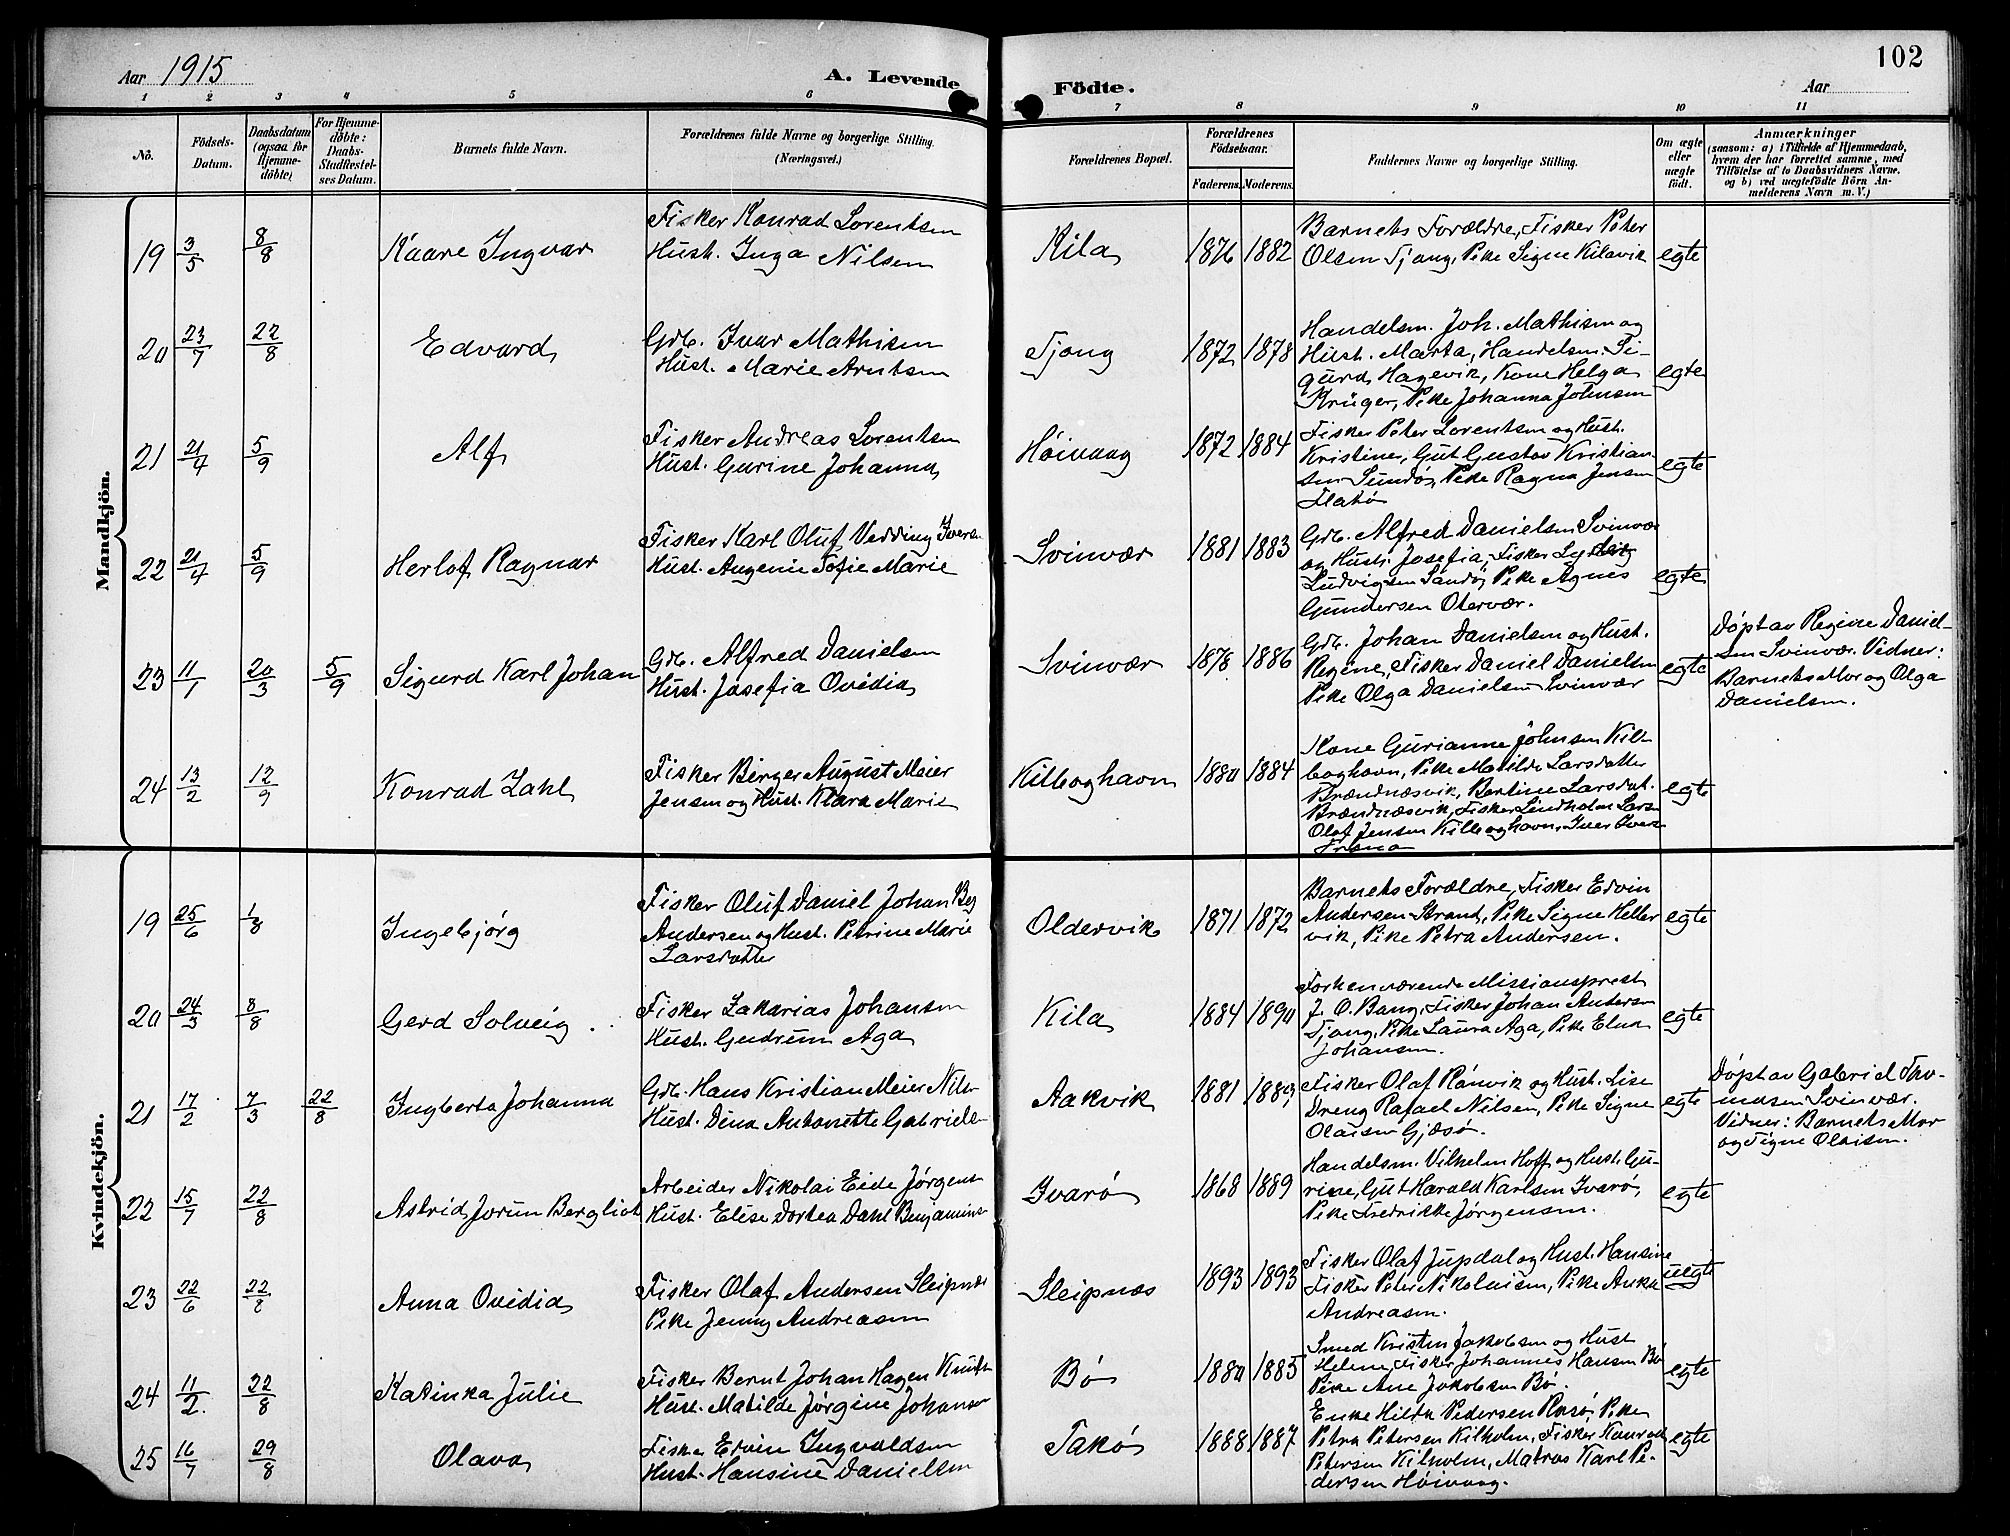 102
Aar 1915
A. Levende
Födte.
Aar
1 2 3 4 5 6 7 8 9 10 11
No.
Födsels-
Datum.
Daabsdatum
(ogsaa for
Hjemme-
döbte)
For Hjemme-
döbte:
Daabs-
Stadfæstel-
ses Datum.
Barnets fulde Navn.
Forældrenes fulde Navne og borgerlige Stilling.
(Næringsvei.)
Forældrenes Bopæl.
Forældrenes
Födselsaar.
Faderens. Moderens.
Faddernes Navne og borgerlige Stilling.
Om ægte
eller
uægte
født.
Anmærkninger
(saasom: a) i Tilfælde af Hjemmedaab,
hvem der har forrettet samme, med
Tilföielse af to Daabsvidners Navne.
og b) ved uægtefödte Börn An-
melderens Navn m. V.)
Mandkjön.
19 3/5 8/8 Kaare Ingvar
Fisker Konrad Lorentsen
Hust. Inga Nilsen
Kila 1876 1882
Barnets Forældre, Fisker Peter
Olsen Tjong, Pike Signe Kilavik
egte
20 23/7 22/8 Edvard
Grdb. Ivar Mathisen
Hust. Marie Arntsen
Tjong 1872 1878
Handelsm. Joh. Mathisen og
Hust. Marta, Handelsm. Si-
gurd Hagevik, Kone Helga
Krüger, Pike Johanna Johnsen
egte
21 21/4 5/9 Alf
Fisker Andreas Lorentsen
Hust. Gurine Johanna
Høivaag 1872 1884
Fisker Peter Lorentsen og Hust.
Kristine, Gut Gustav Kristian-
sen Sundø, Pike Ragna Jensen
Flatø
egte
22 21/4 5/9 Herlof Ragnar
Fisker Karl Oluf Vedding Ivers.
Hust. Augenie Tofie Marie
Svinvær 1881 1883
Grdb. Alfred Danielsen Svinvær
og Hustr. Josefia, Fisker
Ludvigsen Sandø, Pike Agnes
Gundersen Otervær.
egte
23 11/1 20/3 5/9 Sigurd Karl Johan
Grdb. Alfred Danielsen
Hust. Josefia Ovidia
Svinvær 1878 1886
Grdb. Johan Danielsen og Hust.
Regine, Fisker Daniel Danielsen
Pike Olga Danielsen Svinvær
egte
Døpt av Regine Daniel-
sen Svinvær. Vidner:
Barnets Mor og Olga
Danielsen.
24 13/2 12/9 Konrad Zahl
Fisker Birger August Meier
Jensen og Hust. Klara Marie
Kilboghavn 1880 1884
Kone Gurianne Johnsen Kil-
boghavn, Pike Matilde Larsdatter
Brændnæsvik, Bertine Larsdat.
Brændnæsvik, Fisker Lindholm Larsen
Olaf Jensen Kilboghavn, Iver Ivers.
Træna
egte
Kvindekjön.
19 25/6 1/8 Ingebjørg
Fisker Oluf Daniel Johan Berg
Andersen og Hust. Petrine Marie
Larsdatter
Oldervik 1871 1872
Barnets Forældre, Fisker Edvin
Andersen Strand, Pike Signe Heller
vik, Pike Petra Andersen.
egte
20 24/3 8/8 Gerd Solveig
Fisker Zakarias Johansen
Hust. Gudrun Aga
Kila 1884 1890
Forhenværende Missionsprest
J. O. Bang, Fisker Johan Anderson
Tjong, Pike Laura Aga, Pike Elna
Johansen.
egte
21 17/2 7/3 22/8 Ingberta Johanna
Grdb. Hans Kristian Meier Nils.
Hust. Dina Antonette Gabriels.
Aakvik 1881 1889
Fisker Olaf Rånvik og Hust. Lise
Dreng Rafael Nilsen, Pike Signe
Olaisen Gjæsø.
egte
Døpt av Gabriel Tho-
masen Svinvær.
Vidner: Barnets Mor
og Signe Olaisen.
22 15/7 22/8 Astrid Jorun Bergliot
Arbeider Nikolai Eide Jørgens.
Hust. Elise Dortea Dahl Benjamins.
Ivarø 1868 1889
Handelsm. Vilhelm Hoff og Hust. Gu-
rine, Gut Harald Karlsen Ivarø,
Pike Fredrikke Jørgensen.
egte
23 22/6 22/8 Anna Ovidia
Fisker Olaf Andersen Sleipnæs
Pike Jenny Andreasen
Sleipnæs 1893 1893
Fisker Olaf Jupdal og Hust. Hansine
Fisker Peter Nikolaisen, Pike Anna
Andreasen.
uegte
24 11/2 22/8 Katinka Julie
Fisker Bernt Johan Hagen Knuts.
Hust. Matilde Jørgine Johans.
Bø 1880 1885
Smed Kristen Jakobsen og Hust
Helene, Fisker Johannes Hansen Bø
Pike Ane Jakobsen Bø.
egte
25 16/7 29/8 Olava
Fisker Edvin Ingvaldsen
Hust. Hansine Danielsen
Takø 1888 1887
Enke Hilda Pedersen Rosø, Pike
Petra Petersen Kilholm, Fisker Konrad
Petersen Kilholm, Matros Karl Pe-
dersen Høivaag.
egte